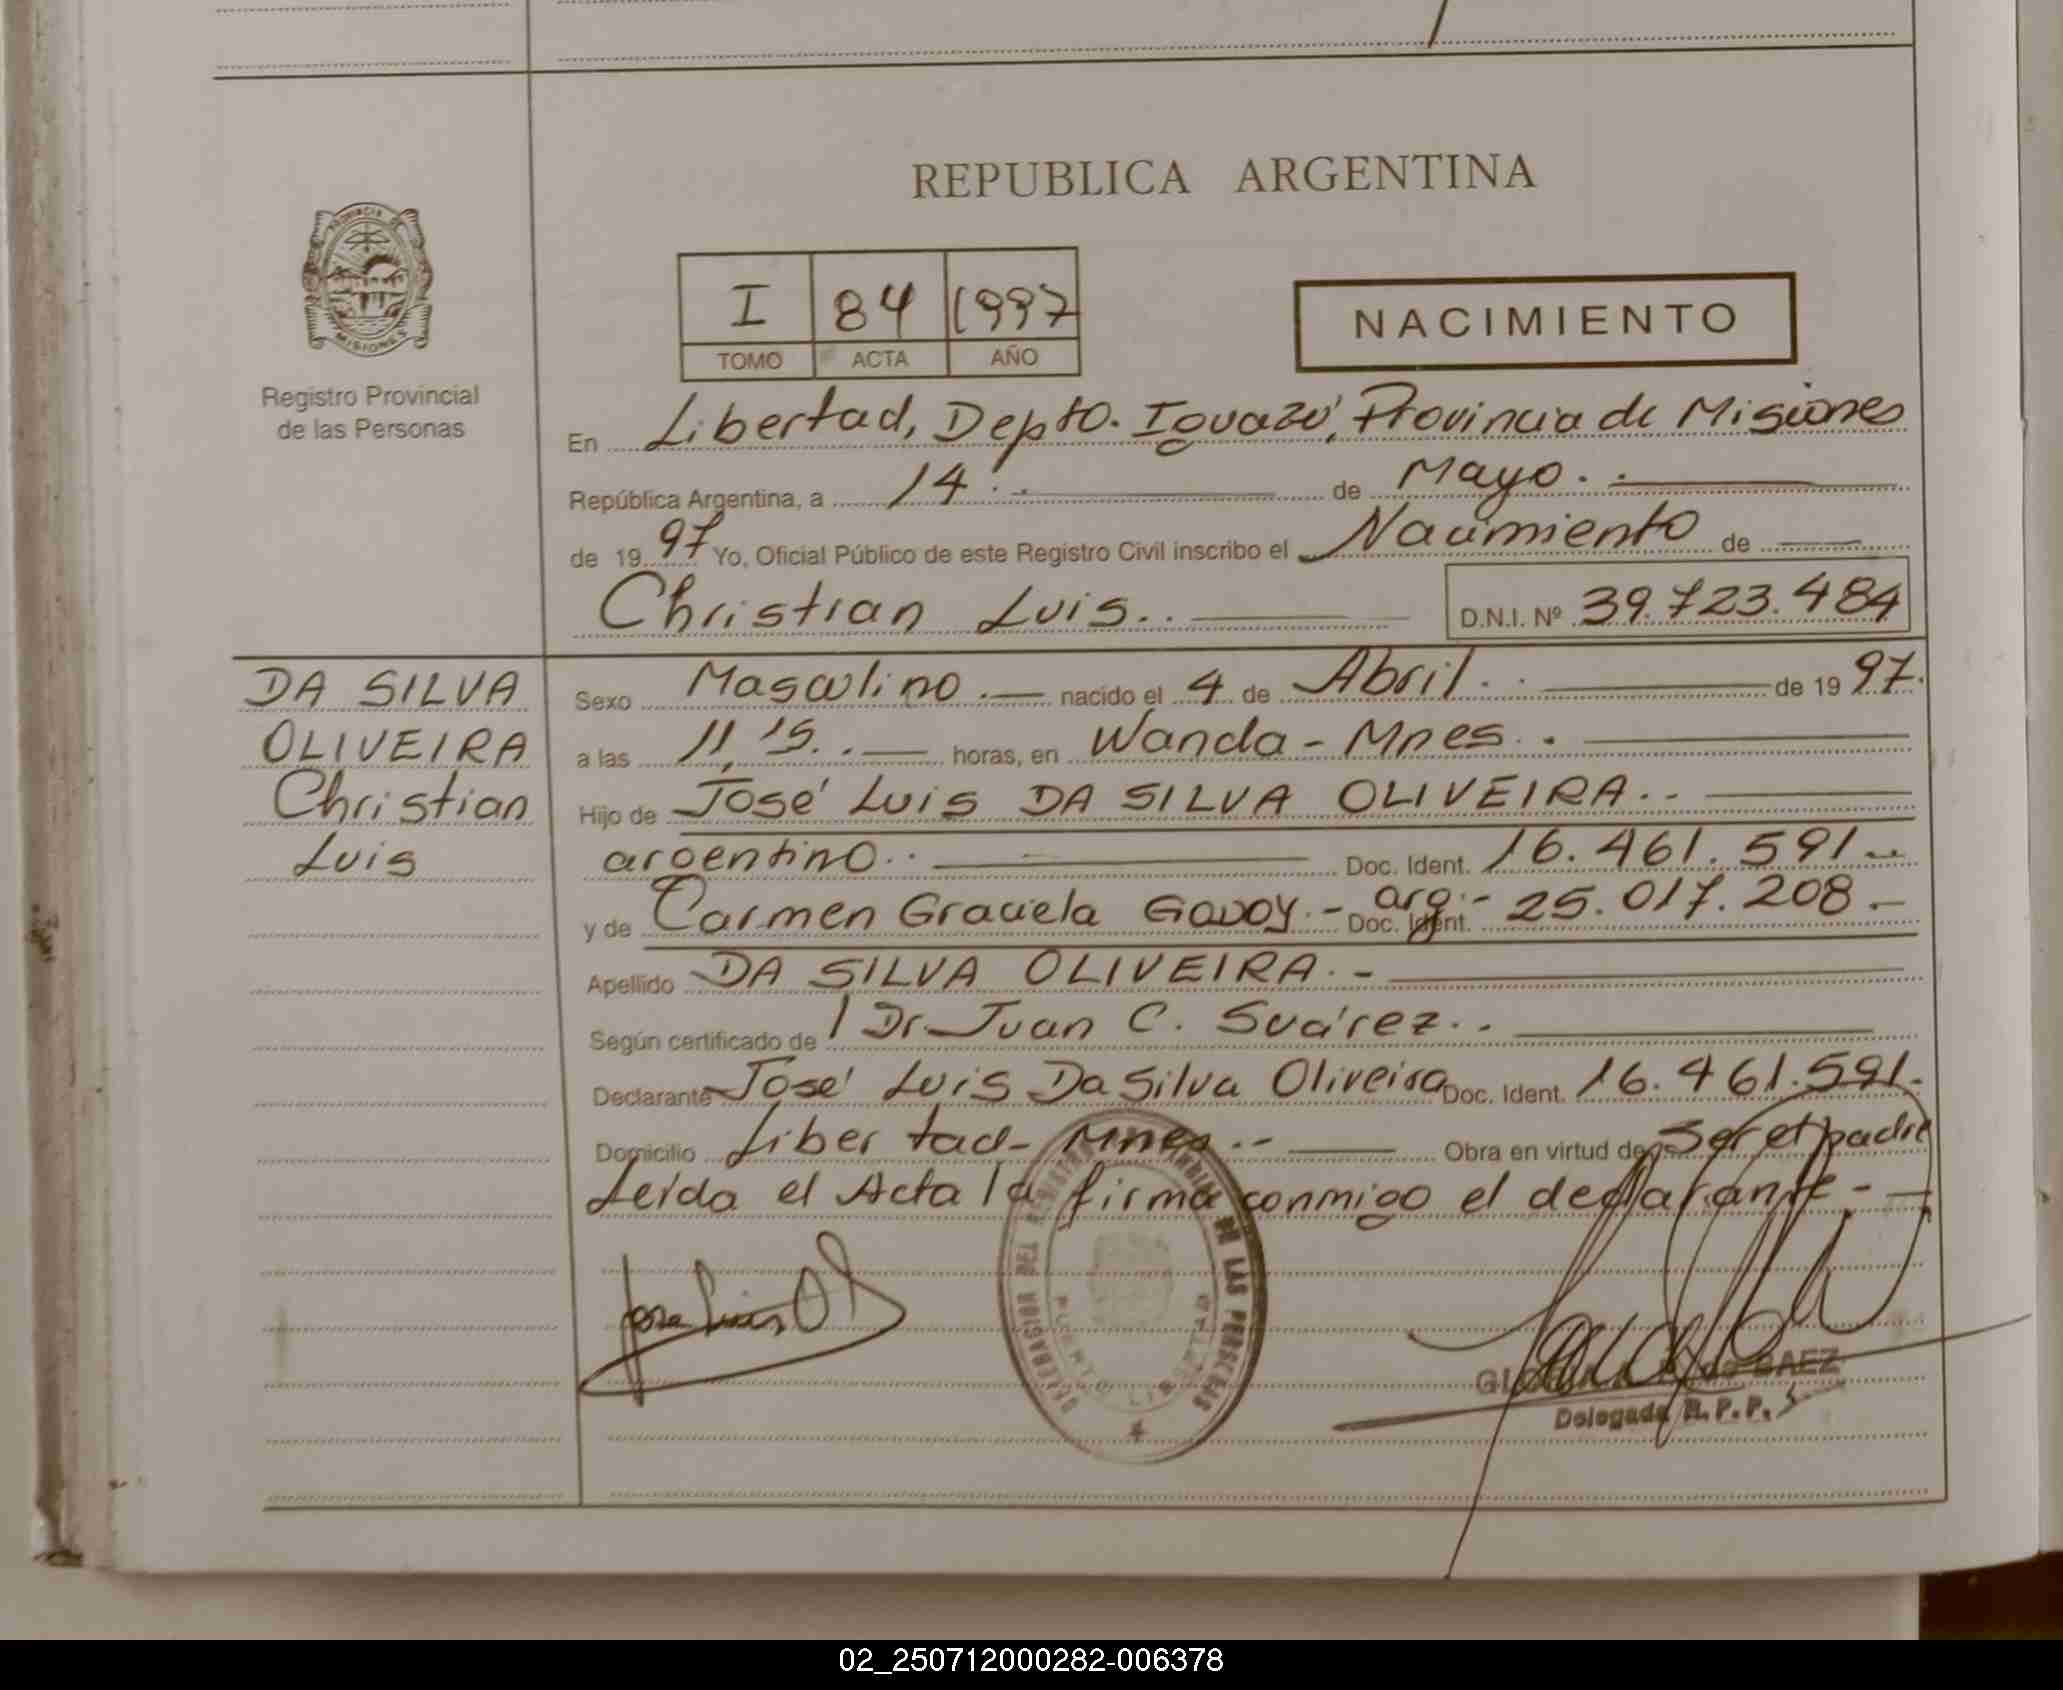 REPUBLICA ARGENTINA
PROVINCIA DE
MISIONES
Registro Provincial
de las Personas
I 84 1997
TOMO ACTA AÑO
NACIMIENTO
En Libertad, Depto. Iguazú, Provincia de Misiones
República Argentina, a 14.- de Mayo.-
de 1997 Yo, Oficial Público de este Registro Civil inscribo el Nacimiento de
Christian Luis.- D.N.I. Nº 39.723.484
DA SILVA
OLIVEIRA
Christian
Luis
Sexo Masculino.- nacido el 4 de Abril.- de 1997.
a las 11,15.- horas, en Wanda - Mnes.-
Hijo de José Luis DA SILVA OLIVEIRA.-
argentino.- Doc. Ident. 16.461.591.-
y de Carmen Graciela Godoy.- arg.- Doc. Ident. 25.017.208.-
Apellido DA SILVA OLIVEIRA.-
Según certificado de Dr. Juan C. Suárez.-
Declarante José Luis Da Silva Oliveira Doc. Ident. 16.461.591.-
Domicilio Libertad - Mnes.- Obra en virtud de ser el padre
Leída el Acta la firma conmigo el declarante.-
Jose Luis
DE LAS PERSONAS
MISIONES
BAEZ
Delegada R.P.P.
02_250712000282-006378